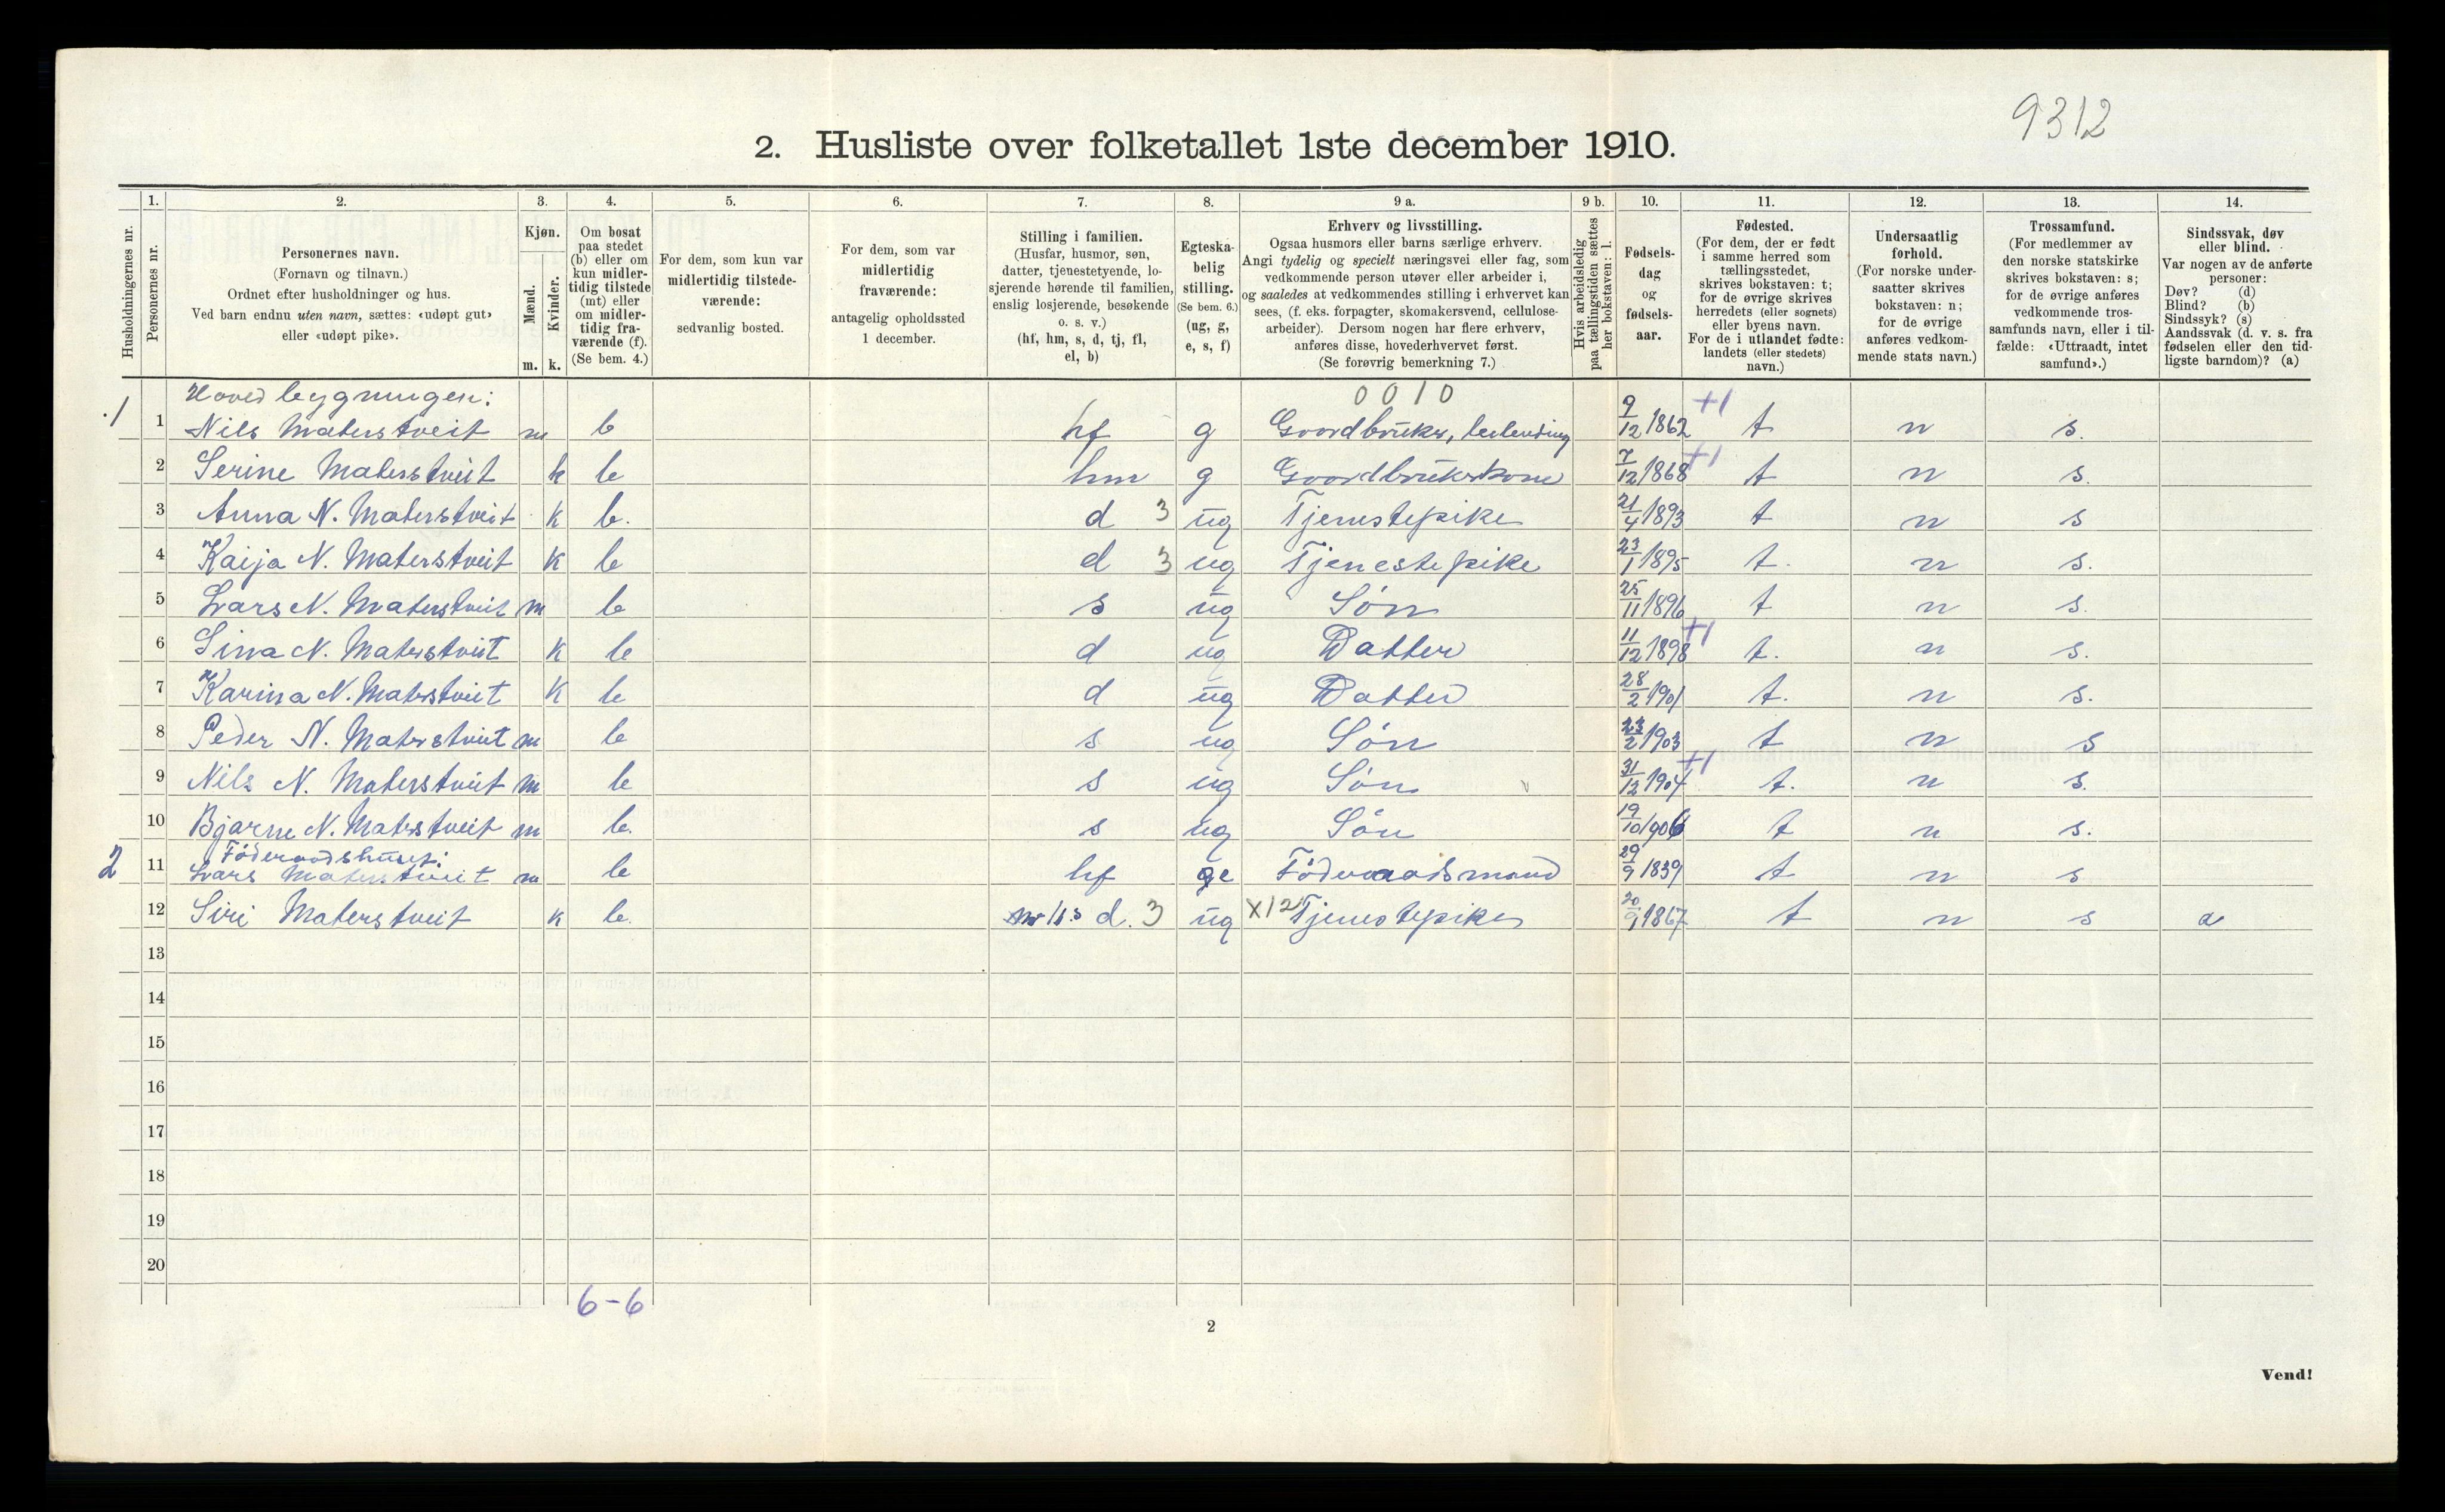 9312
2. Husliste over folketallet 1ste december 1910.
Husholdningernes nr.
1. Personernes nr.
2. Personernes navn. (Fornavn og tilnavn.) Ordnet efter husholdninger og hus. Ved barn endnu uten navn, sættes: «udøpt gut» eller «udøpt pike».
3. Kjøn. Mænd. m. Kvinder. k.
4. Om bosat paa stedet (b) eller om kun midlertidig tilstede (mt) eller om midlertidig fraværende (f). (Se bem. 4.)
5. For dem, som kun var midlertidig tilstedeværende: sedvanlig bosted.
6. For dem, som var midlertidig fraværende: antagelig opholdssted 1 december.
7. Stilling i familien. (Husfar, husmor, søn, datter, tjenestetyende, losjerende hørende til familien, enslig losjerende, besøkende o. s. v.) (hf, hm, s, d, tj, fl, el, b)
8. Egteskabelig stilling. (Se bem. 6.) (ug, g, e, s, f)
9 a. Erhverv og livsstilling. Ogsaa husmors eller barns særlige erhverv. Angi tydelig og specielt næringsvei eller fag, som vedkommende person utøver eller arbeider i, og saaledes at vedkommendes stilling i erhvervet kan sees, (f. eks. forpagter, skomakersvend, cellulosearbeider). Dersom nogen har flere erhverv, anføres disse, hovederhvervet først. (Se forøvrig bemerkning 7.)
9 b. Hvis arbeidsledig paa tællingstiden sættes her bokstaven: l.
10. Fødselsdag og fødselsaar.
11. Fødested. (For dem, der er født i samme herred som tællingsstedet, skrives bokstaven: t; for de øvrige skrives herredets (eller sognets) eller byens navn. For de i utlandet fødte: landets (eller stedets) navn.)
12. Undersaatlig forhold. (For norske undersaatter skrives bokstaven: n; for de øvrige anføres vedkommende stats navn.)
13. Trossamfund. (For medlemmer av den norske statskirke skrives bokstaven: s; for de øvrige anføres vedkommende trossamfunds navn, eller i tilfælde: «Uttraadt, intet samfund».)
14. Sindssvak, døv eller blind. Var nogen av de anførte personer: Døv? (d) Blind? (b) Sindssyk? (s) Aandssvak (d. v. s. fra fødselen eller den tidligste barndom)? (a)
Hovedbygningen: 0010
1 1 Nils Materstveit m b hf g Gaardbruker, leilending 9/12 1862 +1 t n s.
2 Serine Materstveit k b hm g Gaardbrukerkone 7/12 1868 +1 t n s.
3 Anna N. Materstveit k b. d 3 ug Tjenestepike 21/4 1893 t n s
4 Kaija N. Materstveit k b d 3 ug Tjenestepike 23/1 1895 t. n s.
5 Lars N. Materstveit m b s ug Søn 25/11 1896 t n s.
6 Sina N. Materstveit k b d ug Datter 11/12 1898 +1 t. n s.
7 Karina N. Materstveit k b d ug Datter 28/2 1901 t. n s.
8 Peder N. Materstveit m b s ug Søn 23/2 1903 t n s
9 Nils N. Materstveit m b s ug Søn 31/12 1904 +1 t. n s.
10 Bjarne N. Materstveit m b. s ug Søn 19/10 1906 t n s.
Föderaadshuset:
2 11 Lars Materstveit m b hf ge Föderaadsmand 29/9 1839 t n s
12 Siri Materstveit k b. nr 11s d. 3 ug X12 Tjenestepike 20/9 1867 t n s a
13
14
15
16
17
18
19
20
6-6
2
Vend!